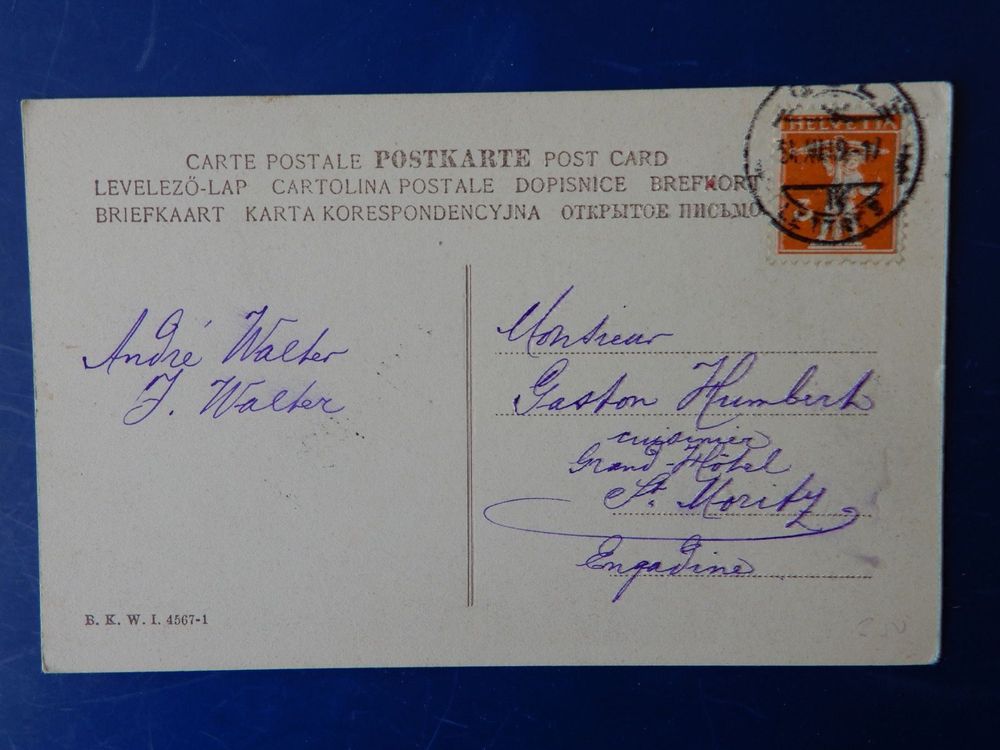 CARTE POSTALE POSTKARTE POST CARD
LEVELEZŐ-LAP CARTOLINA POSTALE DOPISNICE BREFKORT
BRIEFKAART KARTA KORESPONDENCYJNA ОТКРЫТОЕ ПИСЬМО
HELVETIA
André Walter
J. Walter
Monsieur
Gaston Humbert
cuisinier
Grand-Hôtel
St. Moritz
Engadine
B. K. W. I. 4567-1